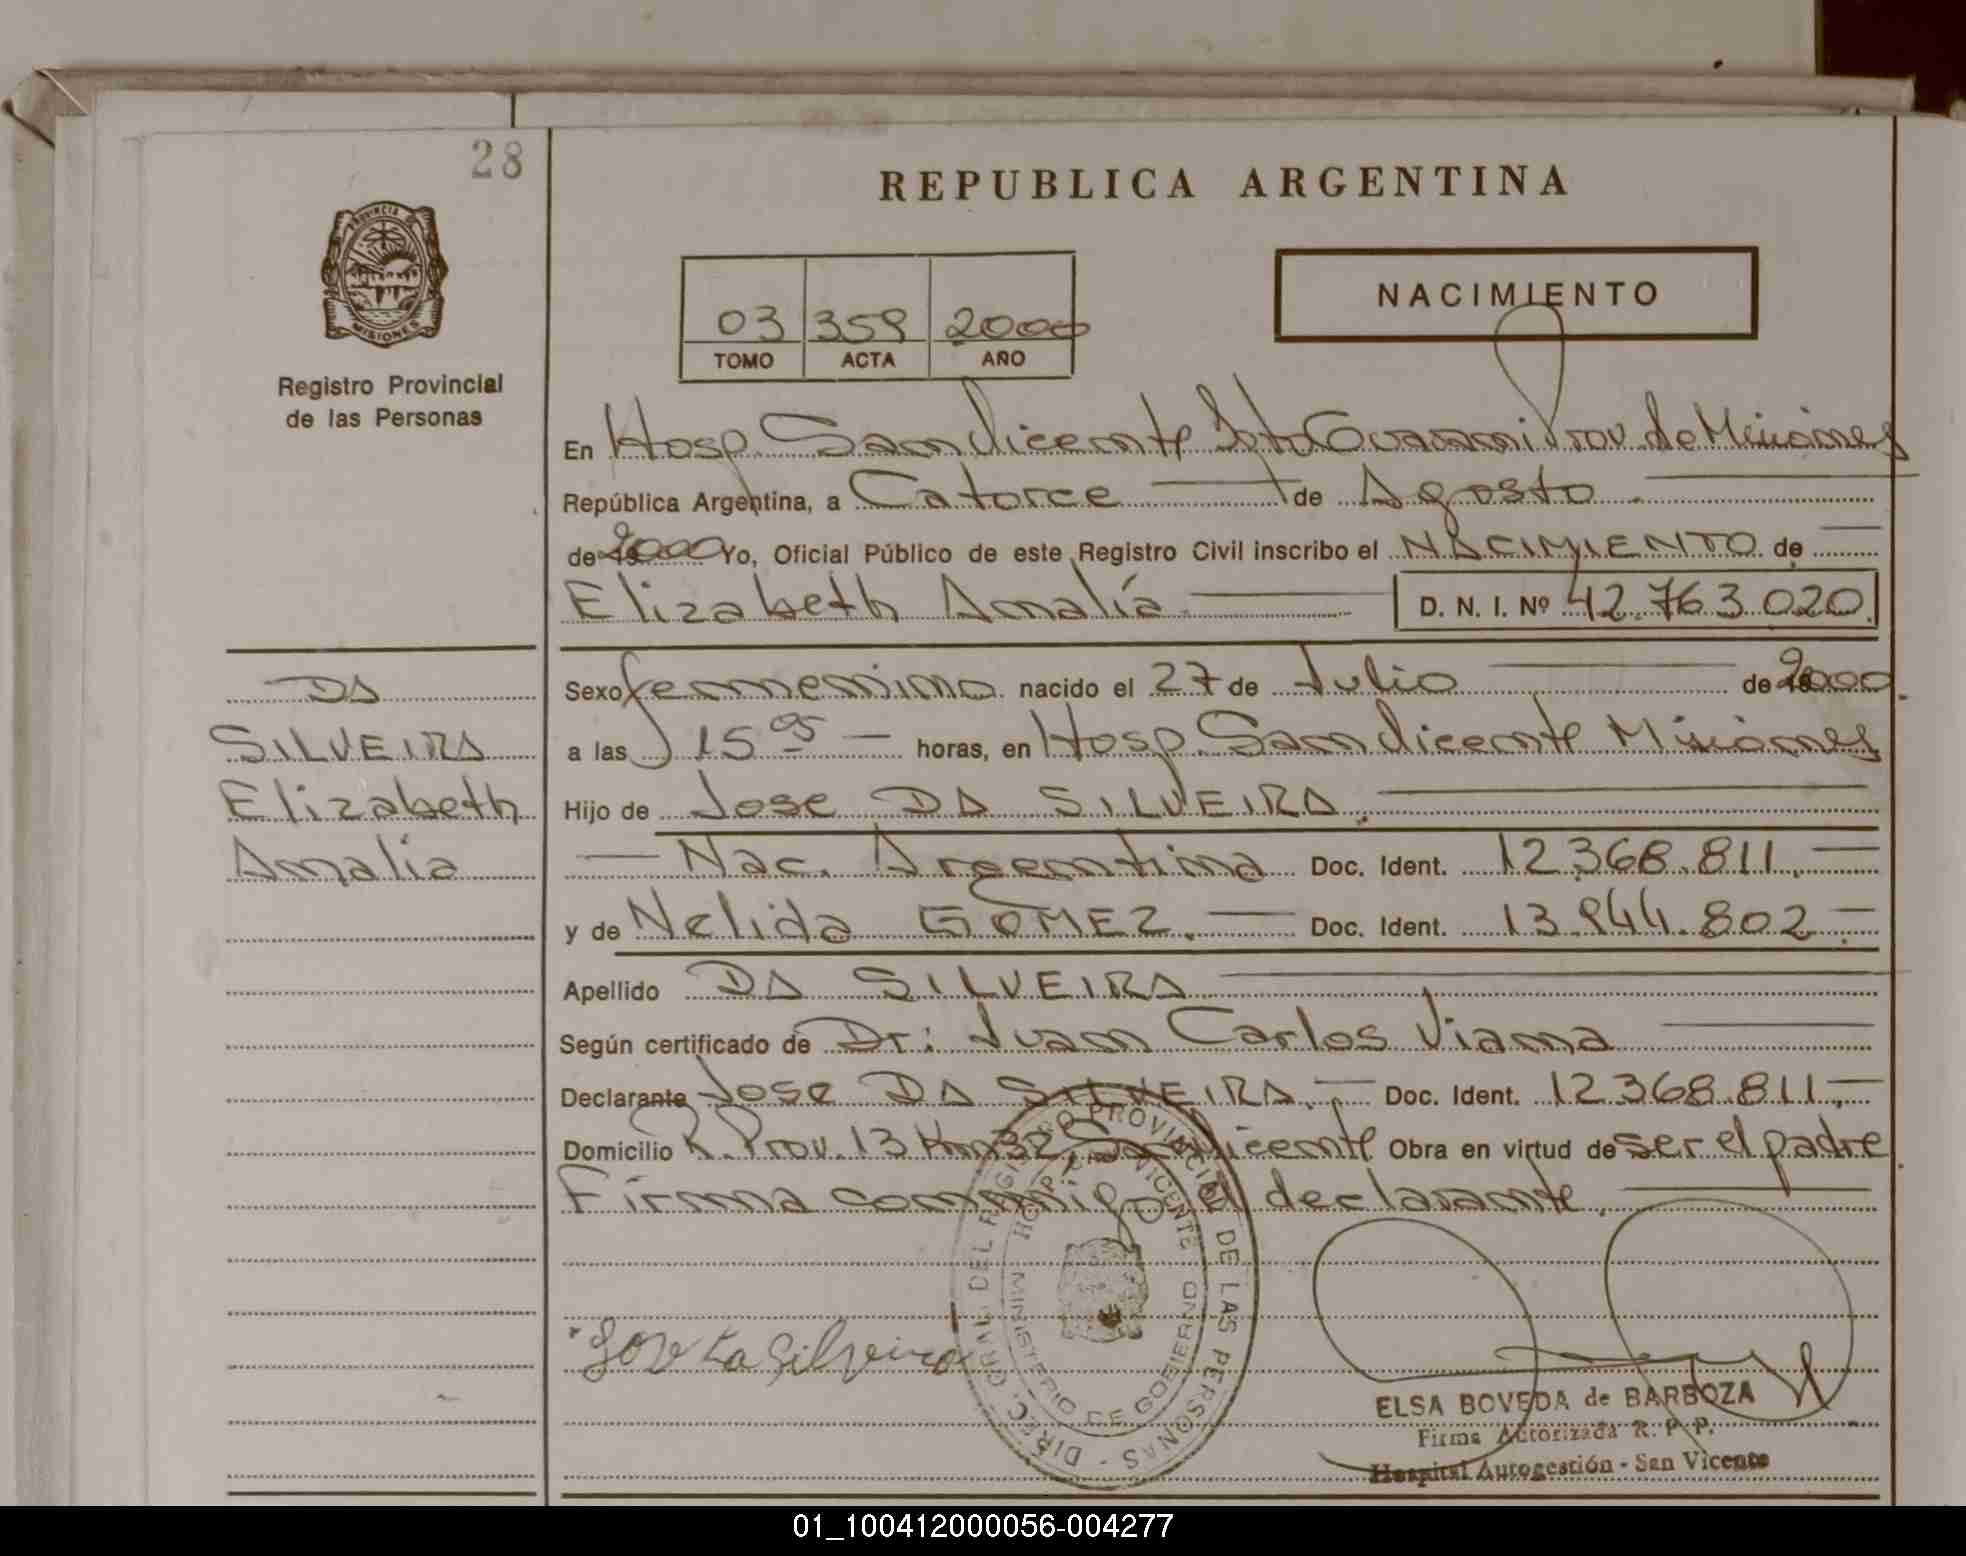 28
REPUBLICA ARGENTINA
PROVINCIA DE
MISIONES
Registro Provincial
de las Personas
03 359 2000
TOMO ACTA AÑO
NACIMIENTO
En Hosp. San Vicente Dpto Guarani Prov. de Misiones
República Argentina, a Catorce de Agosto
de 2000 Yo, Oficial Público de este Registro Civil inscribo el NACIMIENTO de
Elizabeth Amalía D. N. I. Nº 42.763.020
Sexo femenino nacido el 27 de Julio de 2000
a las 15 05 horas, en Hosp. San Vicente Misiones
Hijo de Jose DA SILVEIRA.
Nac. Argentina Doc. Ident. 12.368.811.
y de Nelida GOMEZ. Doc. Ident. 13.944.802
Apellido DA SILVEIRA
Según certificado de Dr: Juan Carlos Viana
Declarante Jose DA SILVEIRA. Doc. Ident. 12.368.811.
Domicilio R. Prov. 13 Km 32, San Vicente Obra en virtud de ser el padre
Firma conmigo el declarante.
DA
SILVEIRA
Elizabeth
Amalía
DIREC. GRAL. DEL REGISTRO PROVINCIAL DE LAS PERSONAS
HOSP. SAN VICENTE
MINISTERIO DE GOBIERNO
ELSA BOVEDA de BARBOZA
Firma Autorizada R. P. P.
Hospital Autogestión - San Vicente
01_100412000056-004277